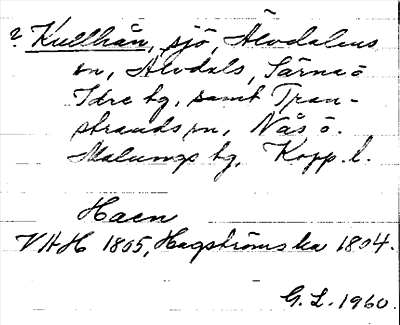 ? Kullhån, sjö, Älvdalens
sn, Älvdals, Särna o
Idre tg, samt Tran-
strands sn, Nås o.
Malungs tg, Kopp. l.
Haen
VAH 1805, Hagströmska 1804.
G. L. 1960.